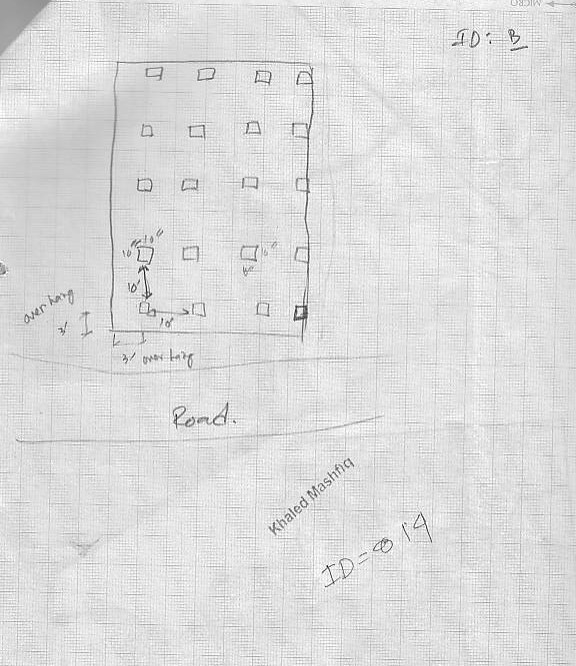 ID: B
10" 10"
10" 8"
10'
over hang
3'
10'
3' over hang
Road.
Khaled Mashfiq
ID= 014